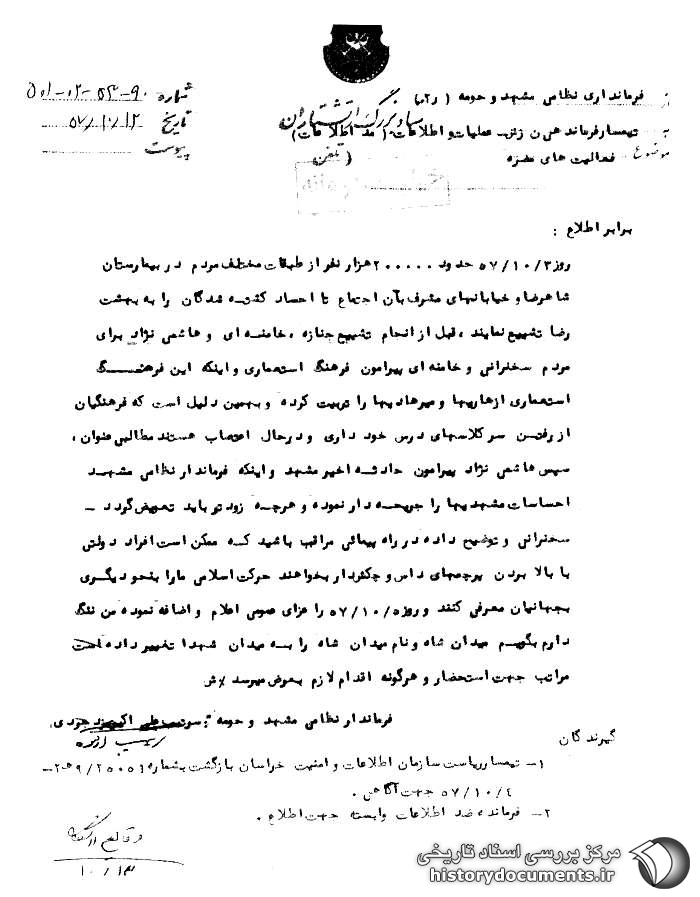 شماره ۹۰-۵۳-۰۲-۵۰۱
تاریخ ۵۷/۱۰/۱۲
پیوست
از فرمانداری نظامی مشهد و حومه ( ر۲ )
به تیمسار فرماندهی ن زش عملیات و اطلاعات ( ضد اطلاعات )
ستاد بزرگ ارتشتاران
موضوع فعالیت های مضره
برابر اطلاع :
روز ۵۷/۱۰/۳ حدود ۲۰۰۰۰۰ هزار نفر از طبقات مختلف مردم در بیمارستان
شاهرضا و خیابانهای مشرف بآن اجتماع تا اجساد کشته شدگان را به بهشت
رضا تشییع نمایند ، قبل از انجام تشییع جنازه ، خامنه ای و هاشمی نژاد برای
مردم سخنرانی و خامنه ای پیرامون فرهنگ استعماری و اینکه این فرهنگ
استعماری ازهاریها و میرهادیها را تربیت کرده و بهمین دلیل است که فرهنگیان
از رفتن سر کلاسهای درس خود داری و در حال اعتصاب هستند مطالبی عنوان ،
سپس هاشمی نژاد پیرامون حادثه اخیر مشهد و اینکه فرماندار نظامی مشهد
احساسات مشهدیها را جریحه دار نموده و هرچه زودتر باید تعویض گردد -
سخنرانی و توضیح داده در راه پیمائی مراقب باشید که ممکن است افراد دولتی
با بالا بردن پرچمهای داس و چکش دار بخواهند حرکت اسلامی ما را بنحو دیگری
بجهانیان معرفی کنند و روز ۵۷/۱۰/۵ را عزای عمومی اعلام و اضافه نموده من ننگ
دارم بگویم میدان شاه و نام میدان شاه را به میدان شهدا تغییر داده است
مراتب جهت استحضار و هرگونه اقدام لازم بعرض میرسد
فرماندار نظامی مشهد و حومه :
گیرندگان
۱- تیمسار ریاست سازمان اطلاعات و امنیت خراسان بازگشت بشماره
۵۷/۱۰/۴ جهت آگاهی .
۲- فرمانده ضد اطلاعات وابسته جهت اطلاع .
۱۰/۱۳
مرکز بررسی اسناد تاریخی
historydocuments.ir